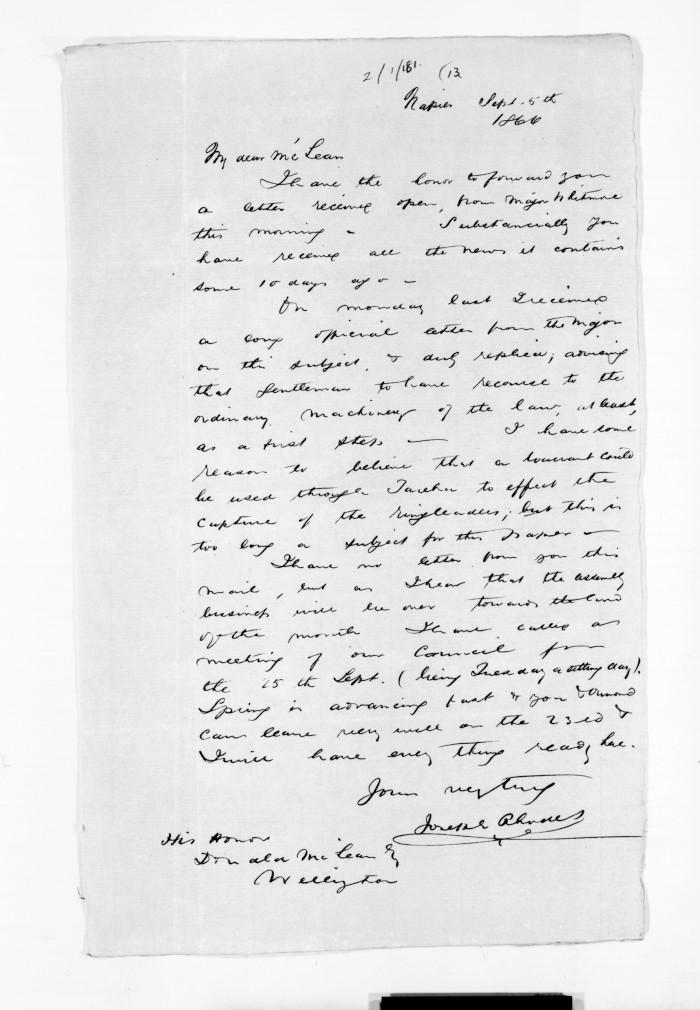 2/1/181. (13
Napier Sept. 5th
1866
My dear McLean
I have the honor to forward you
a letter received open, from Major Whitmore
this morning – Substancially you
have received all the news it contains
some 10 days ago –
On Monday last I received
a long official letter from the Major
on this subject, & duly replied; advising
that Gentleman to have recourse to the
ordinary machinery of the law, at least,
as a first step – I have some
reason to believe that a warrant could
be used through Tareha to effect the
Capture of the ringleaders; but this is
too long a subject for this paper –
I have no letter from you this
mail, but as I hear that the assembly
business will be over towards the end
of the month I have called a
meeting of our Council for
the 25th Sept. (being Tuesday a sitting day).
Spring is advancing fast & you & Ormond
can leave very well on the 23rd &
I will have every thing ready here.
Yours very truly
Joseph Rhodes
His Honor
Donald McLean Esq
Wellington